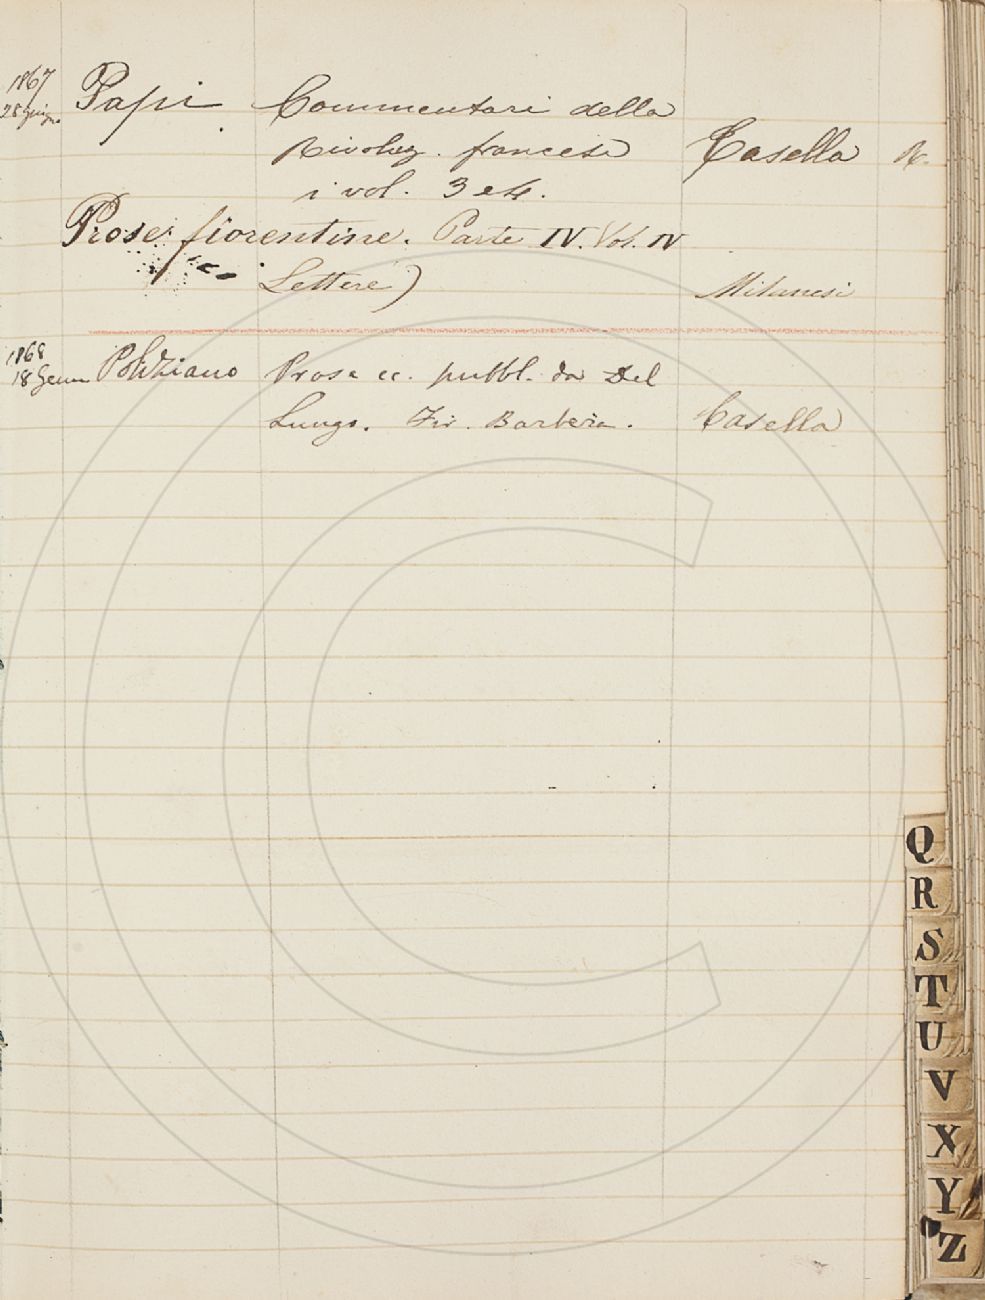 1867
28 Giugno
Papi Commentari della
Rivoluz. francese Casella R.
i vol. 3 e 4.
Prose fiorentine. Parte IV. Vol. IV
Lettere) Milanesi
1868
18 Genn Poliziano Prose ec. pubbl. da Del
Lungo. Fir. Barbèra. Casella
Q
R
S
T
U
V
X
Y
Z